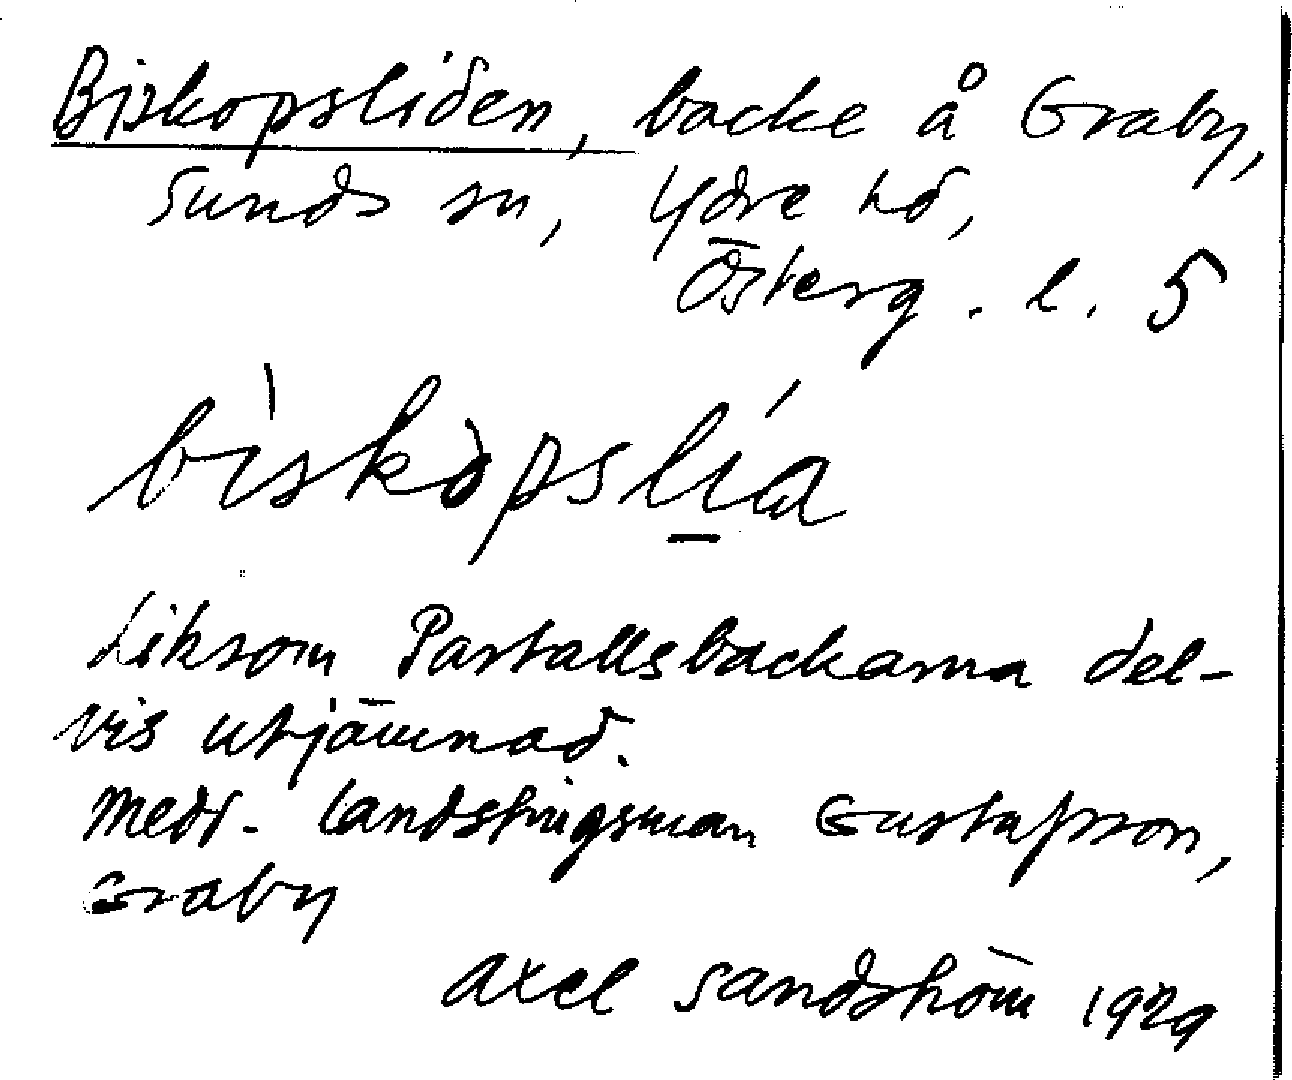 Biskopsliden, backe å Graby,
Sunds sn, Ydre hd,
Österg. l. 5
bìskòpslía
Liksom Partallsbackarna del-
vis utjämnad.
Medd. landstingsman Gustafsson,
Graby
Axel Sandström 1929